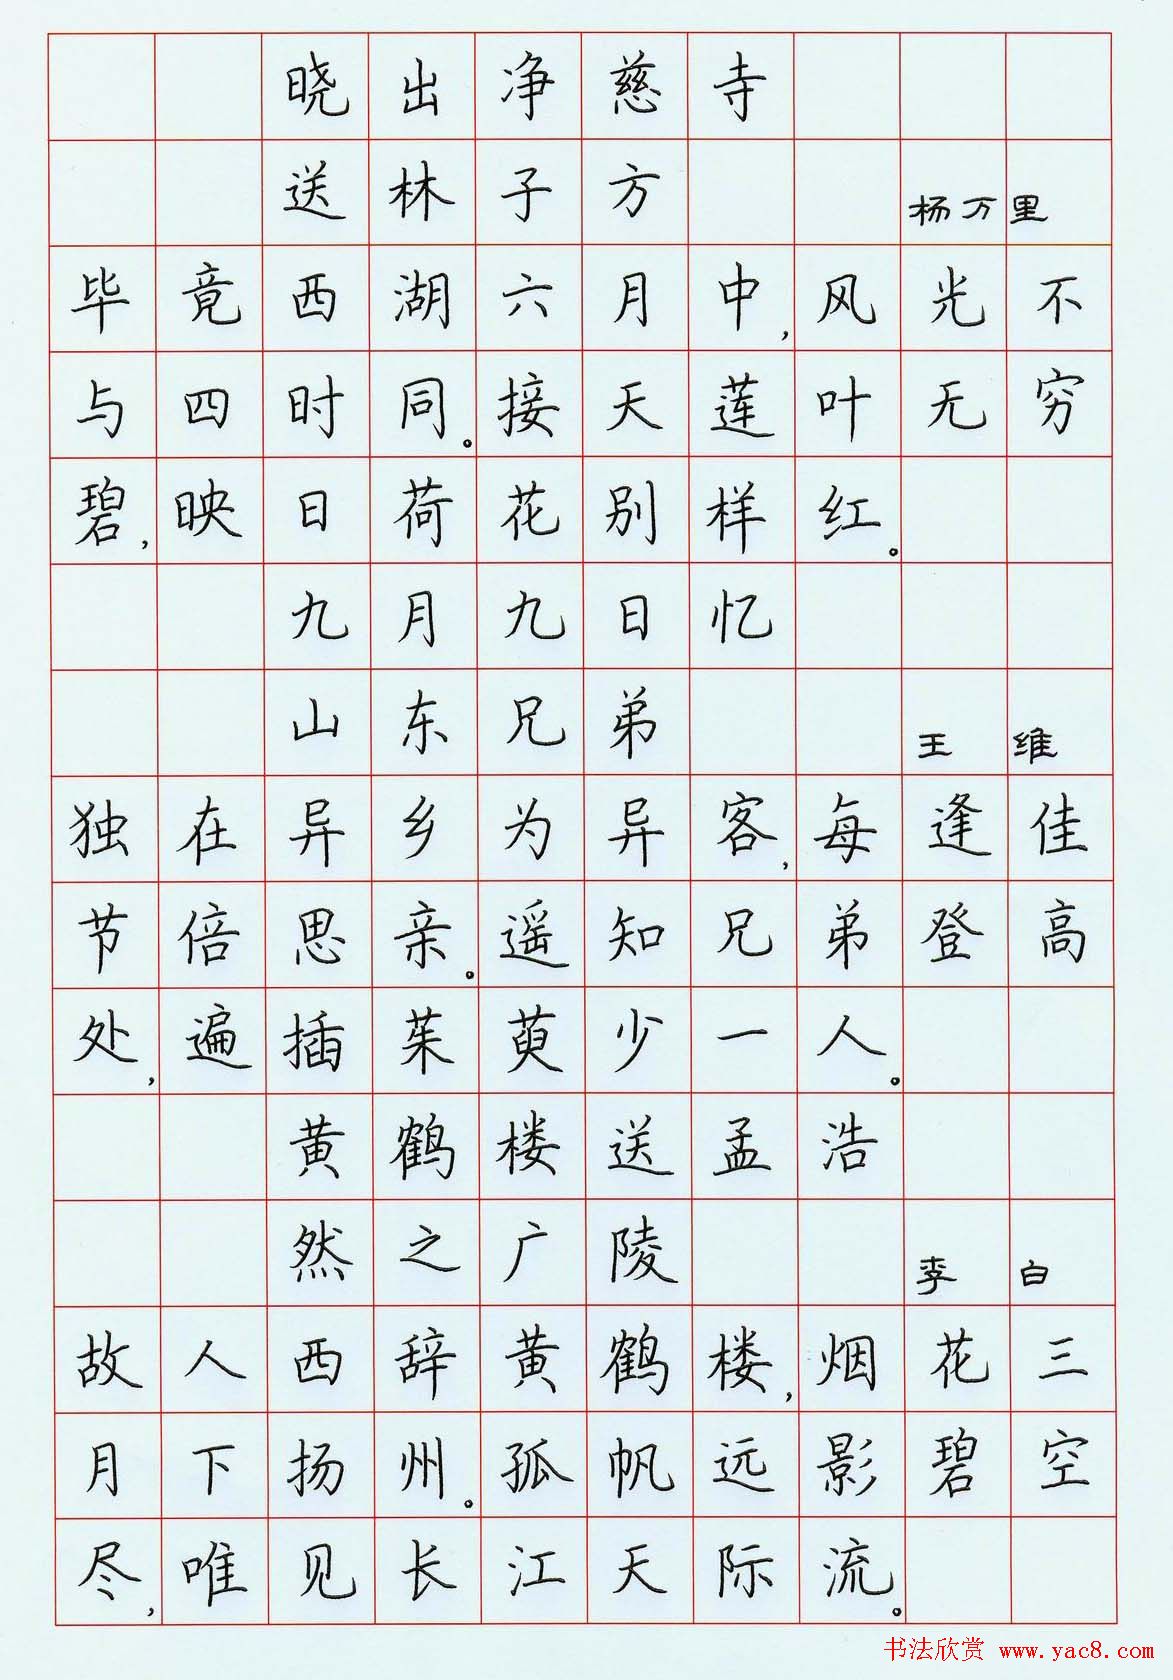 晓出净慈寺
送林子方 杨万里
毕竟西湖六月中,风光不
与四时同。接天莲叶无穷
碧,映日荷花别样红。
九月九日忆
山东兄弟 王维
独在异乡为异客,每逢佳
节倍思亲。遥知兄弟登高
处,遍插茱萸少一人。
黄鹤楼送孟浩
然之广陵 李白
故人西辞黄鹤楼,烟花三
月下扬州。孤帆远影碧空
尽,唯见长江天际流。
书法欣赏 www.yac8.com